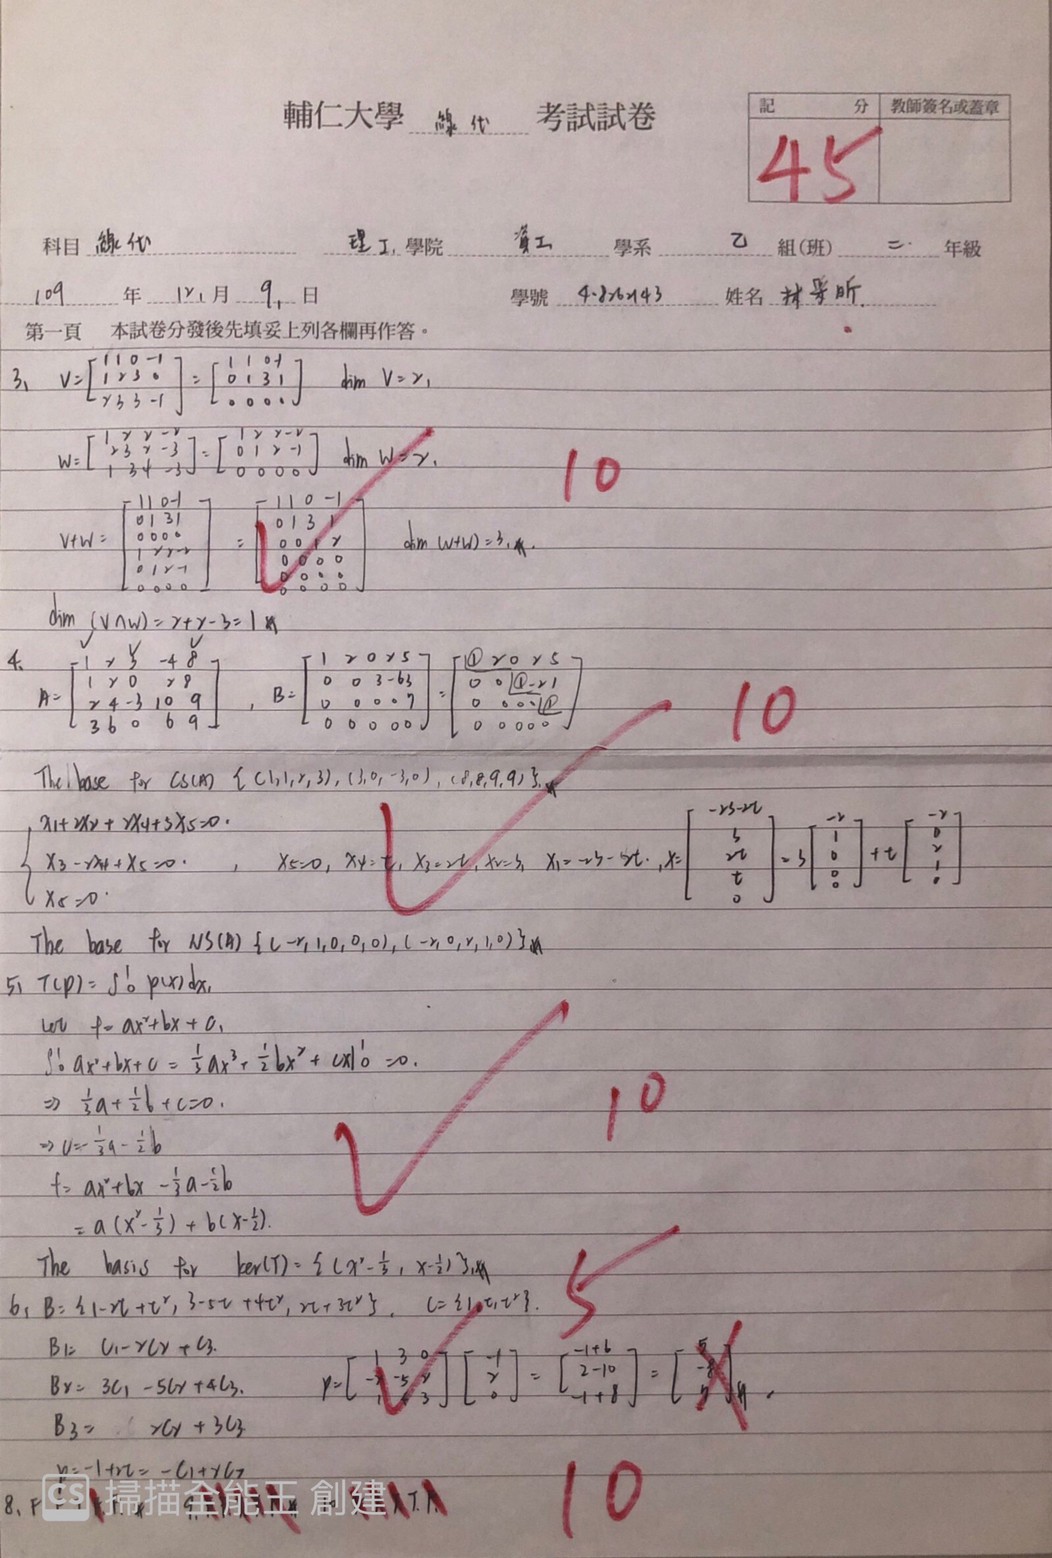 輔仁大學 線代 考試試卷
記 分 教師簽名或蓋章
45
科目 線代 理工 學院 資工 學系 乙 組(班) 二 年級
109 年 12 月 9 日 學號 姓名
第一頁 本試卷分發後先填妥上列各欄再作答。
3. V= [1 1 0 -1; 1 2 3 0; 2 3 3 -1] = [1 1 0 -1; 0 1 3 1; 0 0 0 0] dim V=2,
W= [1 2 2 -2; 2 3 2 -3; 1 3 4 -3] = [1 2 2 -2; 0 1 2 -1; 0 0 0 0] dim W=2,
10
V+W= [1 1 0 -1; 0 1 3 1; 0 0 0 0; 1 2 2 -2; 0 1 2 -1; 0 0 0 0] = [1 1 0 -1; 0 1 3 1; 0 0 1 2; 0 0 0 0; 0 0 0 0; 0 0 0 0] dim (V+W)=3,
dim (V∩W)=2+2-3=1
4. A= [1 2 3 -4 8; 1 2 0 2 8; 2 4 -3 10 9; 3 6 0 6 9], B= [1 2 0 2 5; 0 0 3 -6 3; 0 0 0 0 7; 0 0 0 0 0] = [1 2 0 2 5; 0 0 1 -2 1; 0 0 0 0 1; 0 0 0 0 0]
10
The base for CS(A) {(1,1,2,3), (3,0,-3,0), (8,8,9,9)}
x1+2x2+2x4+5x5=0.
x3-2x4+x5=0. , x5=0, x4=t, x3=2t, x2=s, x1=-2s-2t. , x= [-2s-2t; s; 2t; t; 0] = s [-2; 1; 0; 0; 0] +t [-2; 0; 2; 1; 0]
x5=0.
The base for NS(A) {(-2,1,0,0,0), (-2,0,2,1,0)}
5. T(p)= ∫₀¹ p(x)dx,
Let f=ax²+bx+c,
∫₀¹ ax²+bx+c = ⅓ax³+½bx²+cx|₀¹=0.
⇒ ⅓a+½b+c=0.
10
⇒ c=-⅓a-½b
f= ax²+bx-⅓a-½b
=a(x²-⅓)+b(x-½).
The basis for ker(T)={(x²-⅓, x-½)}
5
6. B={1-2t+t², 3-5t+4t², 2t+3t²}, C={1,t,t²}.
B1= C1-2C2+C3.
B2= 3C1-5C2+4C3.
B3= 2C2+3C3
p= [1 3 0; -2 -5 2; 1 4 3] [-1; 2; 0] = [-1+6; 2-10; -1+8] = [5; -8; 7]
p=-1+2t=-C1+2C2
10
8.
CS 掃描全能王 創建